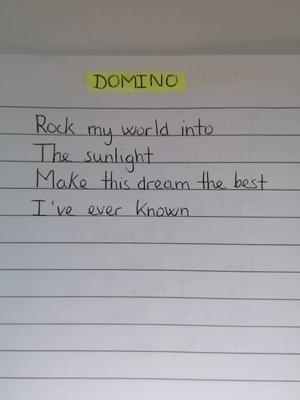 DOMINO
Rock my world into
The sunlight
Make this dream the best
I've ever known